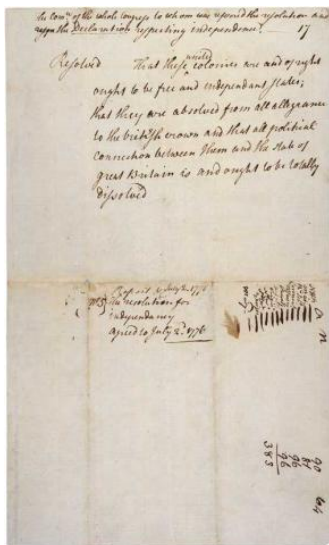 The Com.ee of the whole Congress to whom was referred the resolution and
respg the Declaration respecting independence. — 17
Resolved That these united colonies are and of right
ought to be free and independant states;
that they are absolved from all allegiance
to the british crown and that all political
connection between them and the state of
great Britain is and ought to be totally
dissolved
Report July 2. 1776
the resolution for
independancy
agreed to July 2.d 1776
a n
90
81
96
96
383